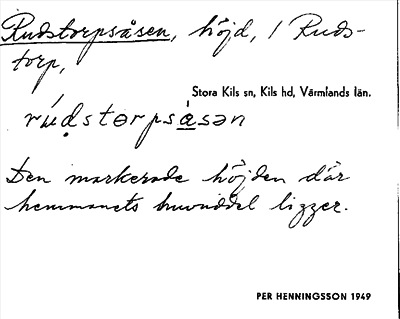 Rudstorpsåsen, höjd, i Ruds-
torp,
Stora Kils sn, Kils hd, Värmlands län.
rúdstɵrpsàsən
Den markerade höjden där
hemmanets huvuddel ligger.
PER HENNINGSSON 1949